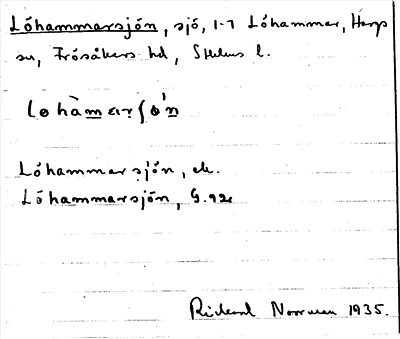 Lóhammarsjön, sjö, 1-7 Lóhammar, Harg
sn, Frösåkers hd, Sthlms l.
Lóhammarsjön, ek.
Lóhammarsjön, G.92
Rickard Norrman 1935.